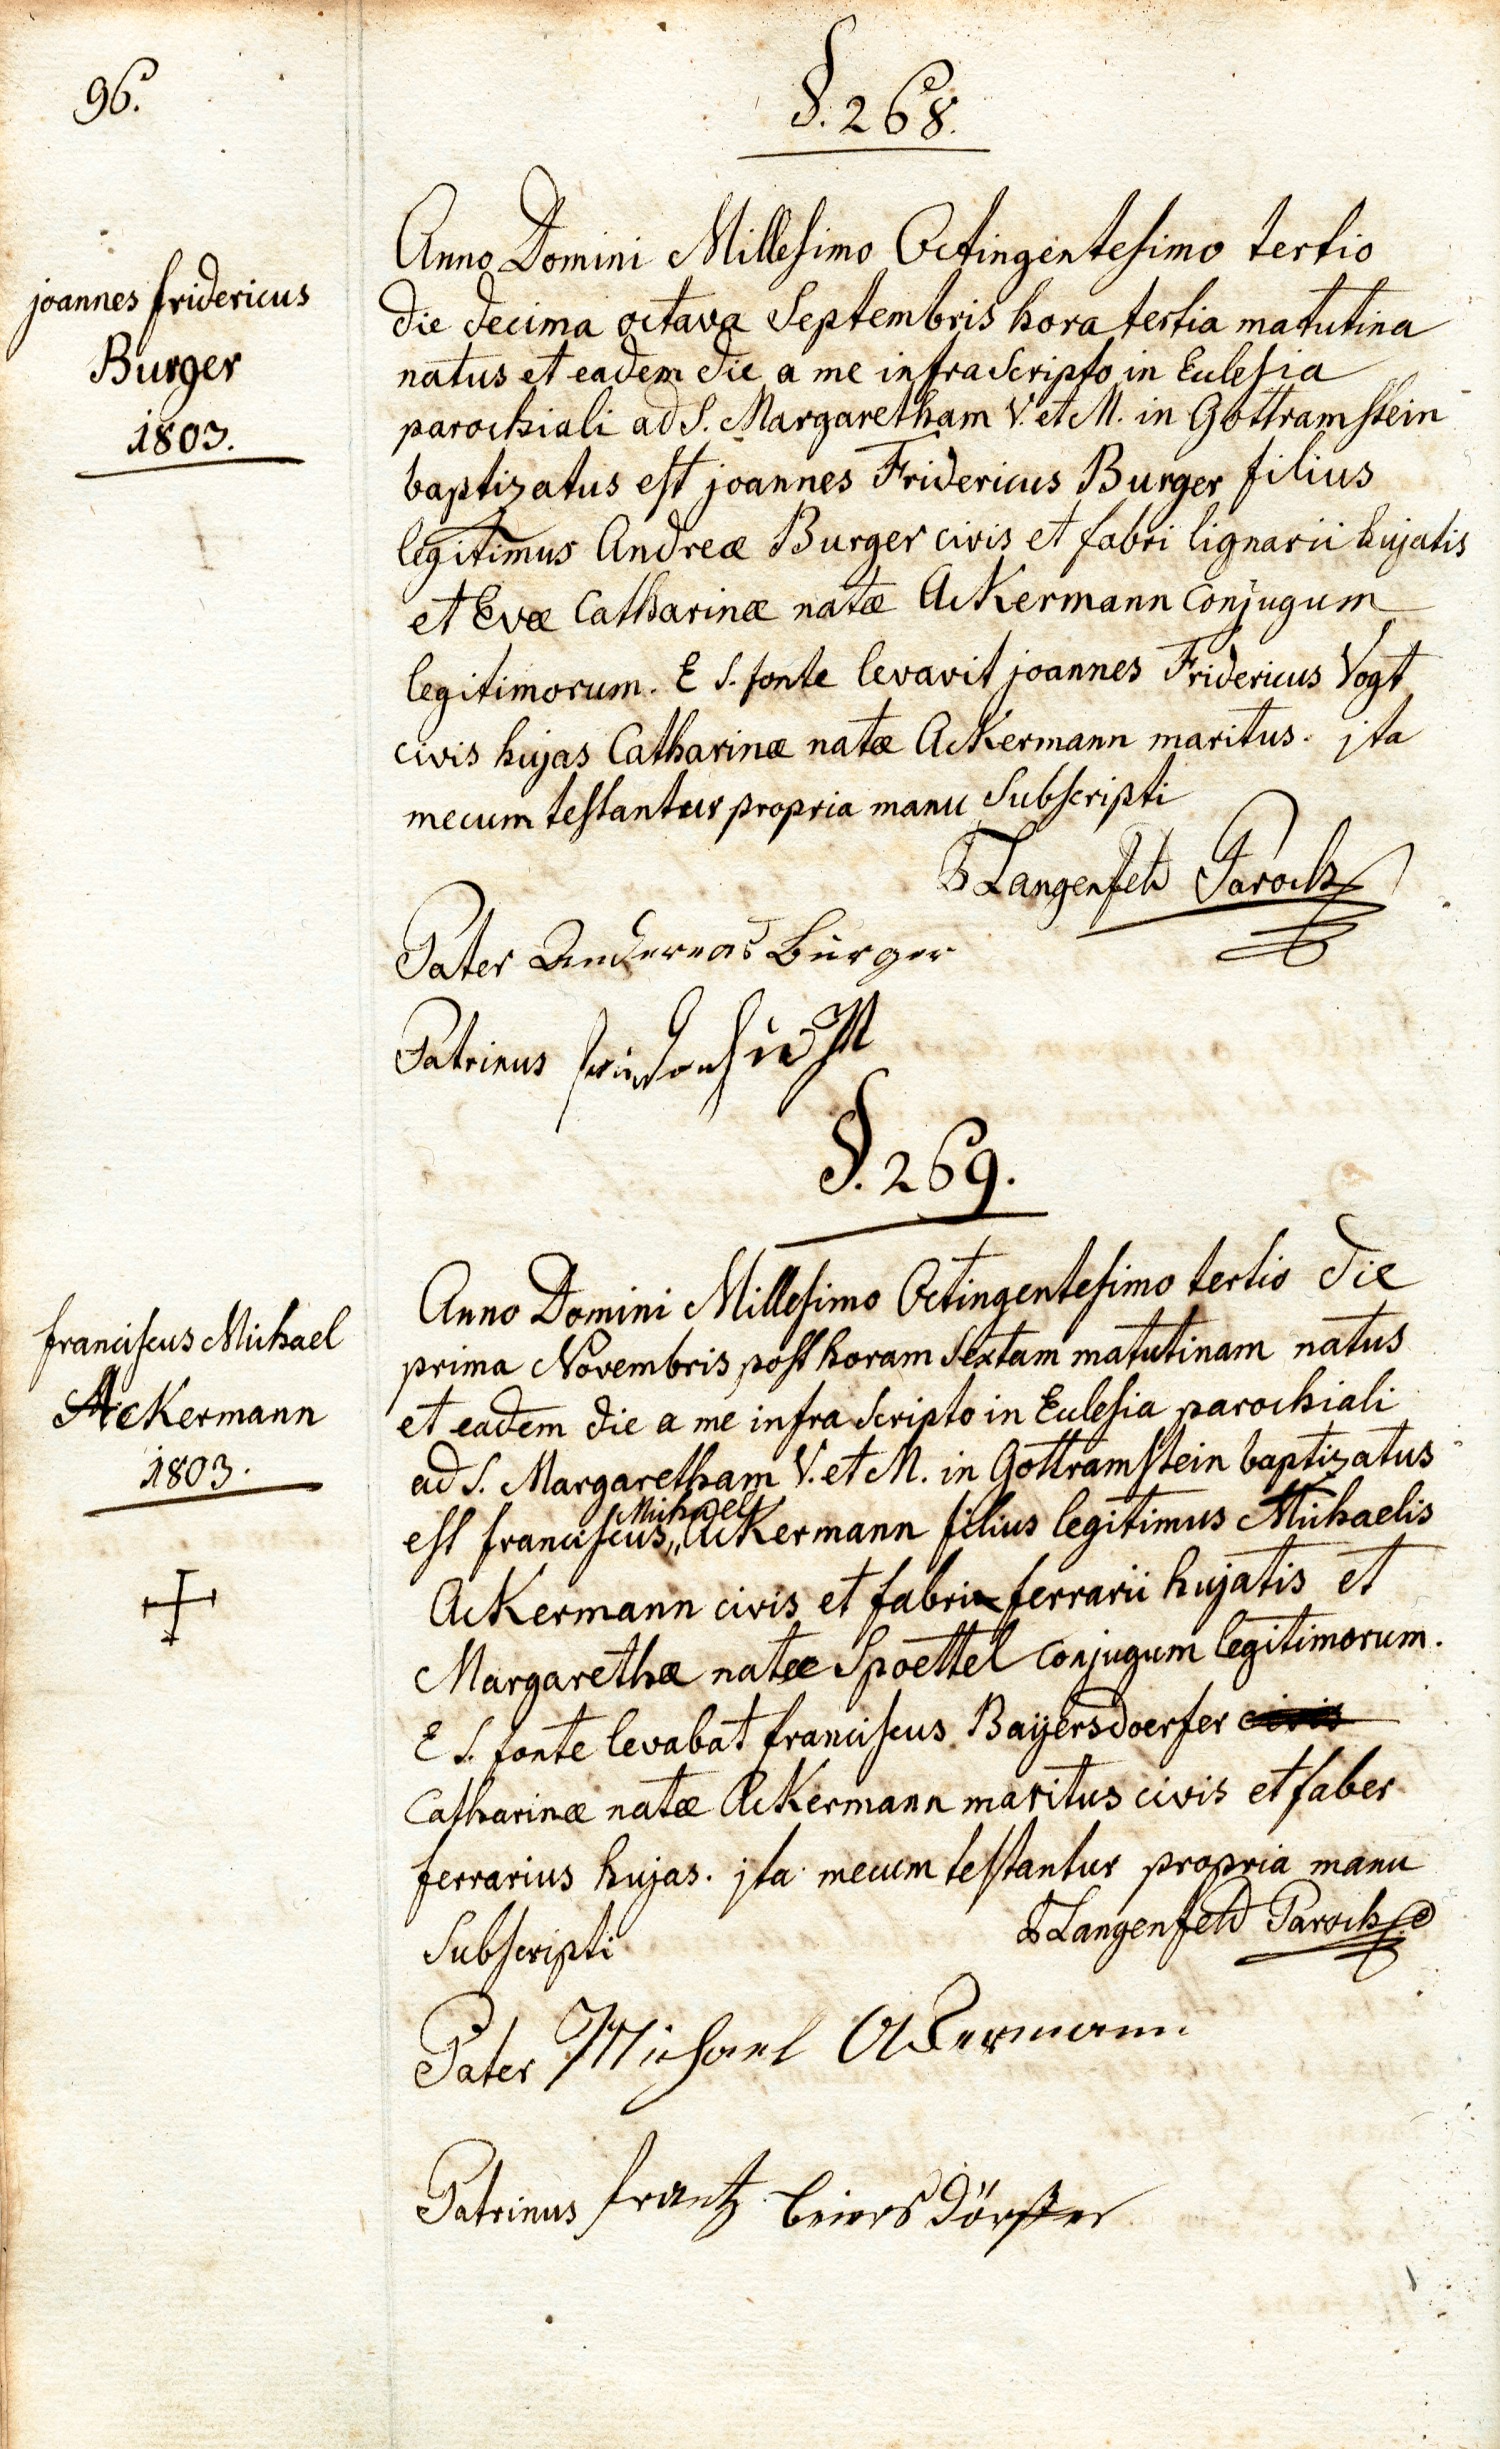 96.
§. 268.
joannes fridericus
Burger
1803.
Anno Domini Millesimo Octingentesimo tertio
die decima octava Septembris hora tertia matutina
natus et eadem die a me infra Scripto in Eulesia
parochiali ad S. Margaretham V. et M. in Gottramstein
baptizatus est joannes Fridericus Burger filius
legitimus Andreæ Burger civis et fabri lignarii hujatis
et Evæ Catharinæ natæ Ackermann Conjugum
legitimorum. E S. fonte levavit joannes Fridericus Vogt
civis hujas Catharinæ natæ Ackermann maritus. jta
mecum testantur propria manu Subscripti
Langenfeld Paroch
Pater Andereas Burger
Patrinus
§. 269.
franciscus Michael
Ackermann
1803.
Anno Domini Millesimo Octingentesimo tertio die
prima Novembris post horam Sextam matutinam natus
et eadem die a me infra Scripto in Eulesia parochiali
ad S. Margaretham V. et M. in Gottramstein baptizatus
est franciscus Michael Ackermann filius legitimus Michaelis
Ackermann civis et fabri ferrarii hujatis et
Margarethæ natæ Spoettel Conjugum legitimorum.
E S. fonte levabat franciscus Bayersdoerfer civis
Catharinæ natæ Ackermann maritus civis et faber
ferrarius hujas. jta mecum testantur propria manu
Subscripti
Langenfeld Paroch
Pater Michael Ackermann
Patrinus frantz beiersdörffer